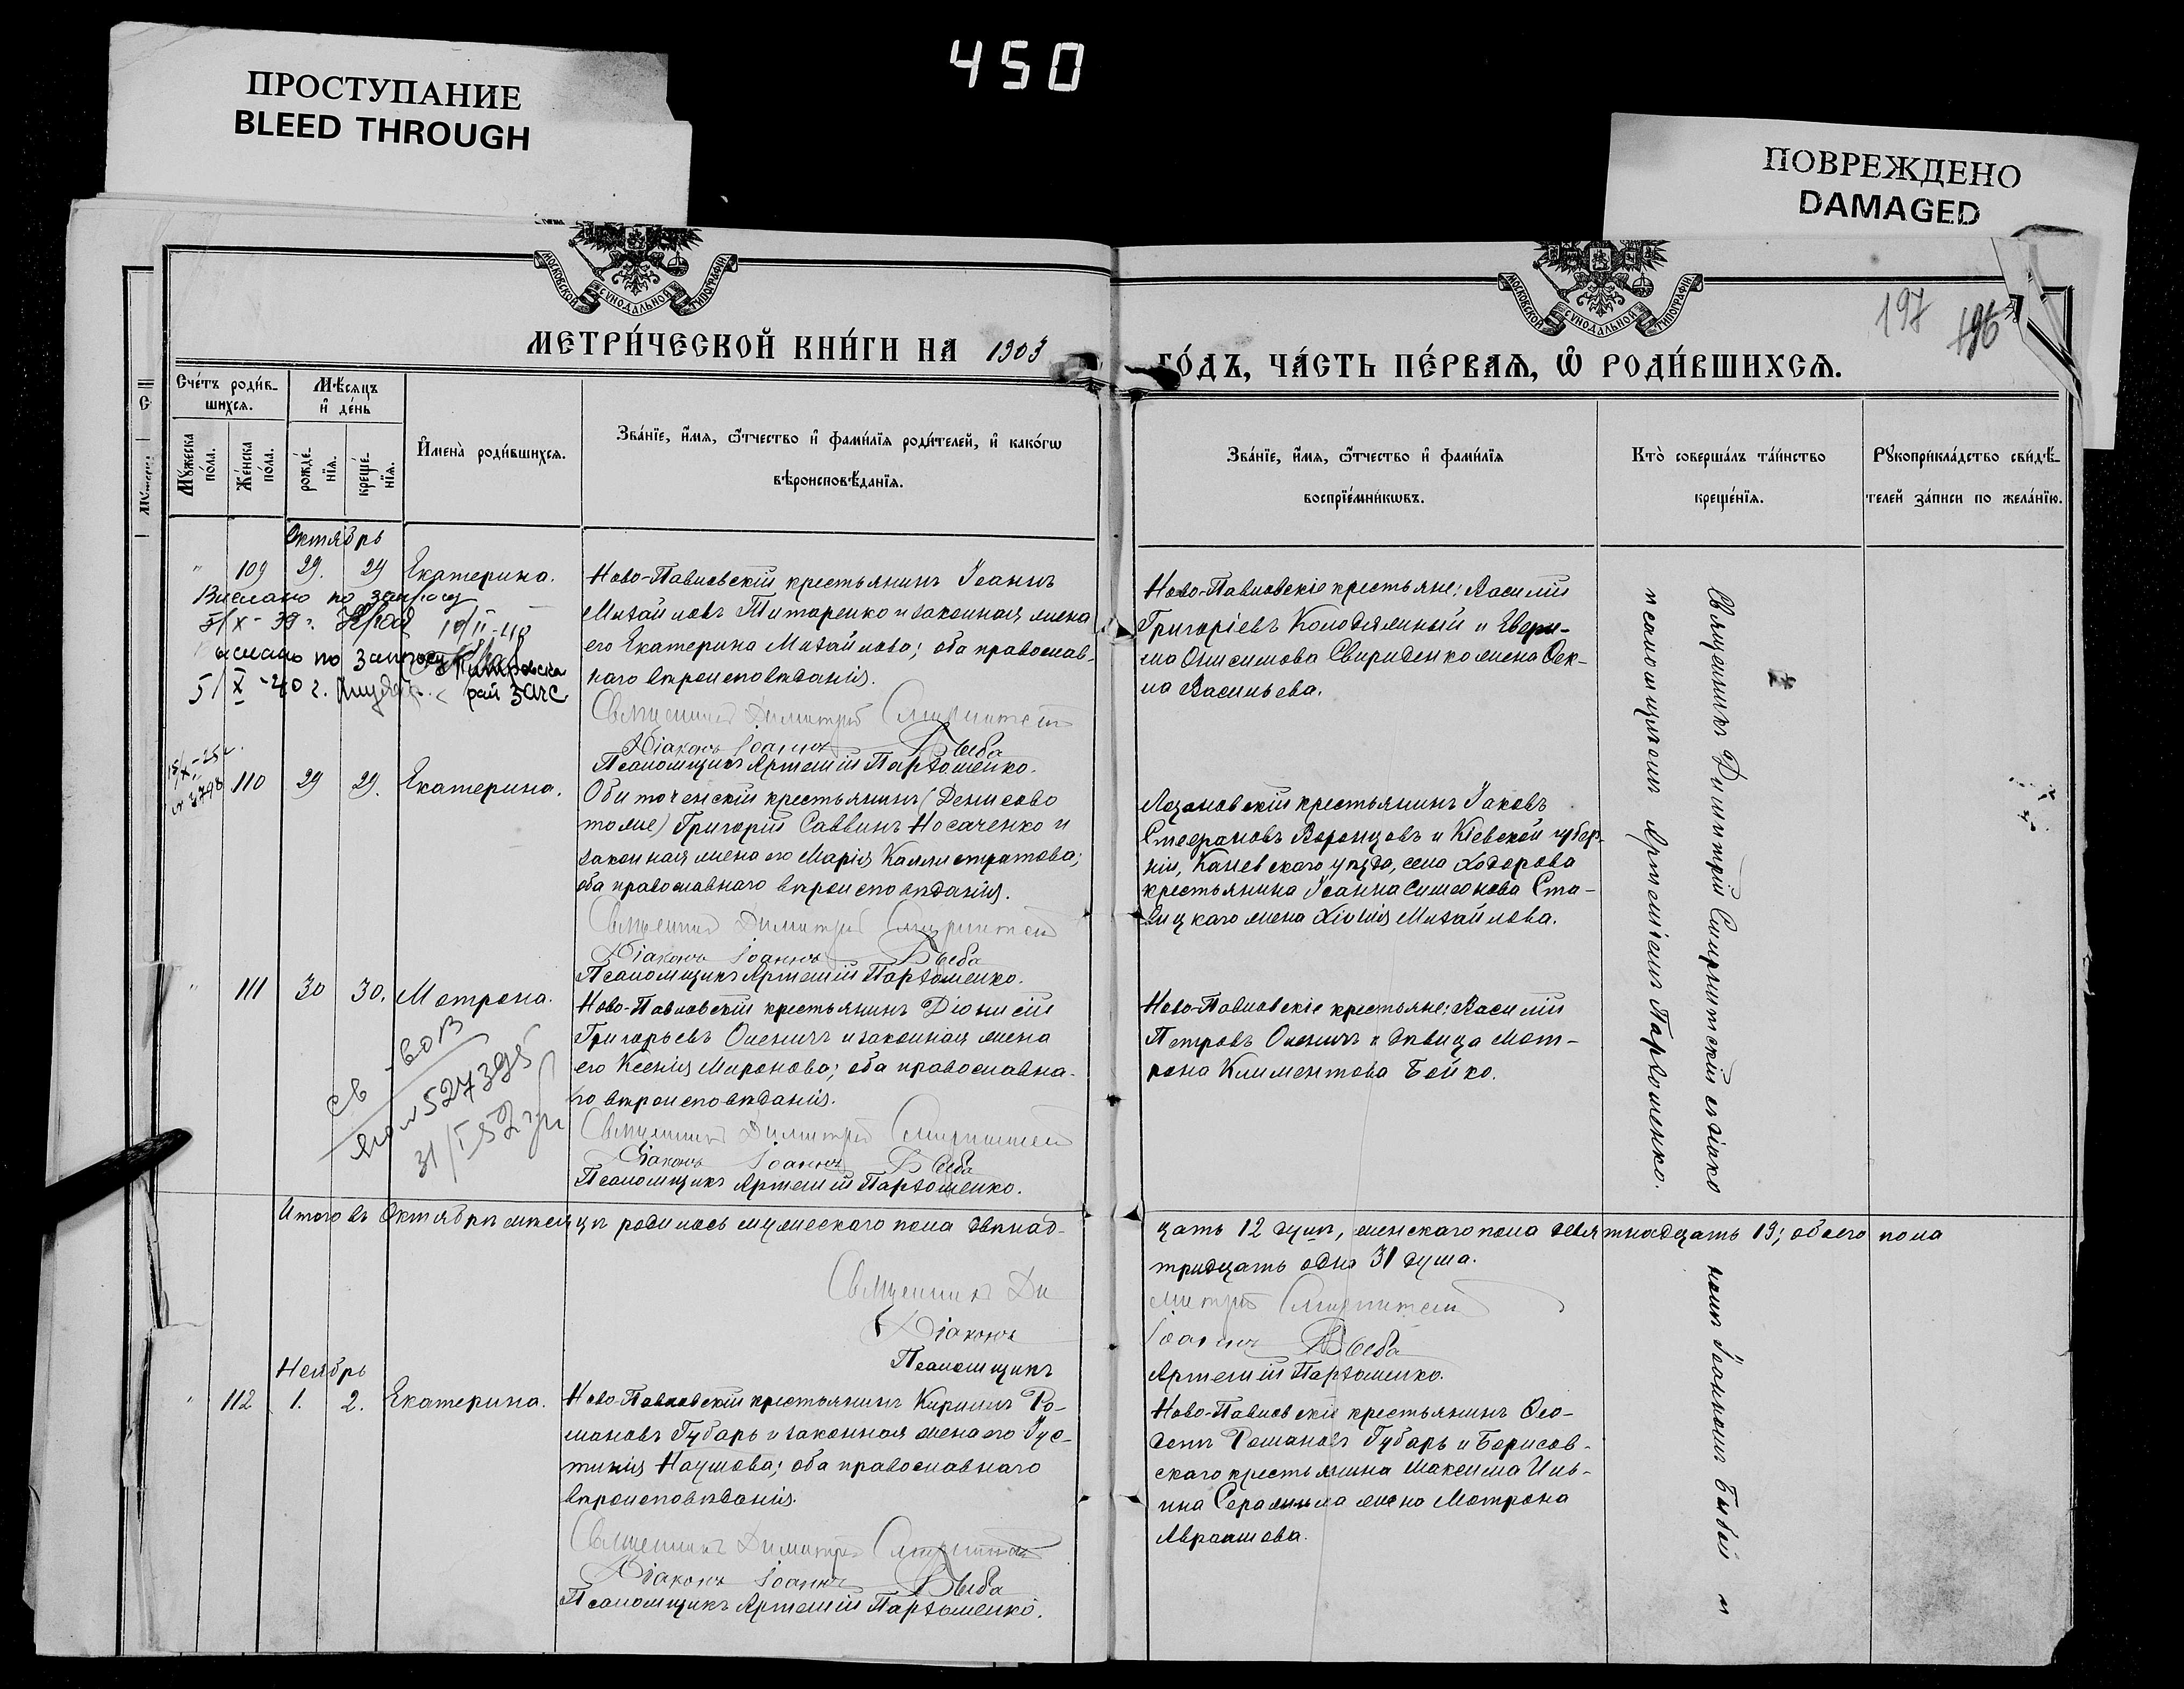 450
ПРОСТУПАНИЕ
BLEED THROUGH
ПОВРЕЖДЕНО
DAMAGED
МОСКОВСКОЙ СѴНОДАЛЬНОЙ ТИПОГРАФІИ
МОСКОВСКОЙ СѴНОДАЛЬНОЙ ТИПОГРАФІИ
197 196
МЕТРИ́ЧЕСКОЙ КНИ́ГИ НА 1903
ГО́ДЪ, ЧА́СТЬ ПЕ́РВАѦ, Ѡ РОДИ́ВШИХСѦ.
Сче́тъ роди́в-
шихсѧ.
Мѣ́сѧцъ
и҆ де́нь
Мꙋ́жеска
по́ла.
Же́нска
по́ла.
рожде́-
нїѧ.
креще́-
нїѧ.
И҆мена̀ роди́вшихсѧ.
Зва́нїе, и҆́мѧ, ѻ҆́тчество и҆ фами́лїѧ роди́телей, и҆ како́гѡ
вѣроисповѣ́данїѧ.
Зва́нїе, и҆́мѧ, ѻ҆́тчество и҆ фами́лїѧ
воспрїе́мникѡвъ.
Кто̀ соверша́лъ та́инство
креще́нїѧ.
Рꙋкоприкла́дство свидѣ́-
телей за́писи по жела́нїю.
Октябрь
" 109 29. 29 Екатерина.
Ново-Павловскій крестьянинъ Іоаннъ
Михайловъ Титаренко и законная жена
его Екатерина Михайлова; оба православ-
наго вѣроисповѣданія.
Священникъ Димитрій
Діаконъ Іоаннъ Быба
Псаломщикъ Артемій Пархоменко.
Ново-Павловскіе крестьяне: Василій
Григоріевъ Колодяжный и
Онисимова Свириденко жена Ѳек-
ла Васильева.
Выслано по запросу
5/X-39 г. 10/II-40
Выслано по запросу
5/X-40 г. рай загс
110 29 29. Екатерина.
Обиточенскій крестьянинъ (Денисово
тоже) Григорій Саввинъ Носаченко и
законная жена его Марія Каллистратова;
оба православнаго вѣроисповѣданія.
Священникъ Димитрій
Діаконъ Іоаннъ Быба
Псаломщикъ Артемій Пархоменко.
Лозановскій крестьянинъ Іаковъ
Стефановъ Воронцовъ и Кіевской губер-
ніи, Каневскаго уѣзда, села Ходорова
крестьянина Іоанна Симеонова Ста-
вицкаго жена Хіонія Михайлова.
" 111 30 30. Мотрона.
Ново-Павловскій крестьянинъ Діонисій
Григорьевъ Оленичъ и законная жена
его Ксенія Миронова; оба православна-
го вѣроисповѣданія.
Священникъ Димитрій
Діаконъ Іоаннъ Быба
Псаломщикъ Артемій Пархоменко.
Ново-Павловскіе крестьяне: Василій
Петровъ Оленичъ и дѣвица Мот-
рона Климентова Бойко.
св-во в
527395
31/I 52
Итого въ Октябрѣ мѣсяцѣ родилось мужескаго пола двѣнад-
цать 12 душъ, женскаго пола девятнадцать 19; обоего пола
тридцать одна 31 душа.
Священникъ Ди
митрій
Діаконъ
Іоаннъ Быба
Псаломщикъ
Артемій Пархоменко.
Ноябрь
" 112 1. 2. Екатерина.
Ново-Павловскій крестьянинъ Кириллъ Ро-
мановъ Губарь и законная жена его Іус-
тинія Наумова; оба православнаго
вѣроисповѣданія.
Священникъ Димитрій
Діаконъ Іоаннъ Быба
Псаломщикъ Артемій Пархоменко.
Ново-Павловскій крестьянинъ Ѳео-
Романовъ Губарь и Борисов-
скаго крестьянина Максима Иль-
ина жена Мотрона
Авраамова.
Священникъ Димитрій съ діако
номъ Іоанномъ Быбой и
псаломщикомъ Артеміемъ Пархоменко.